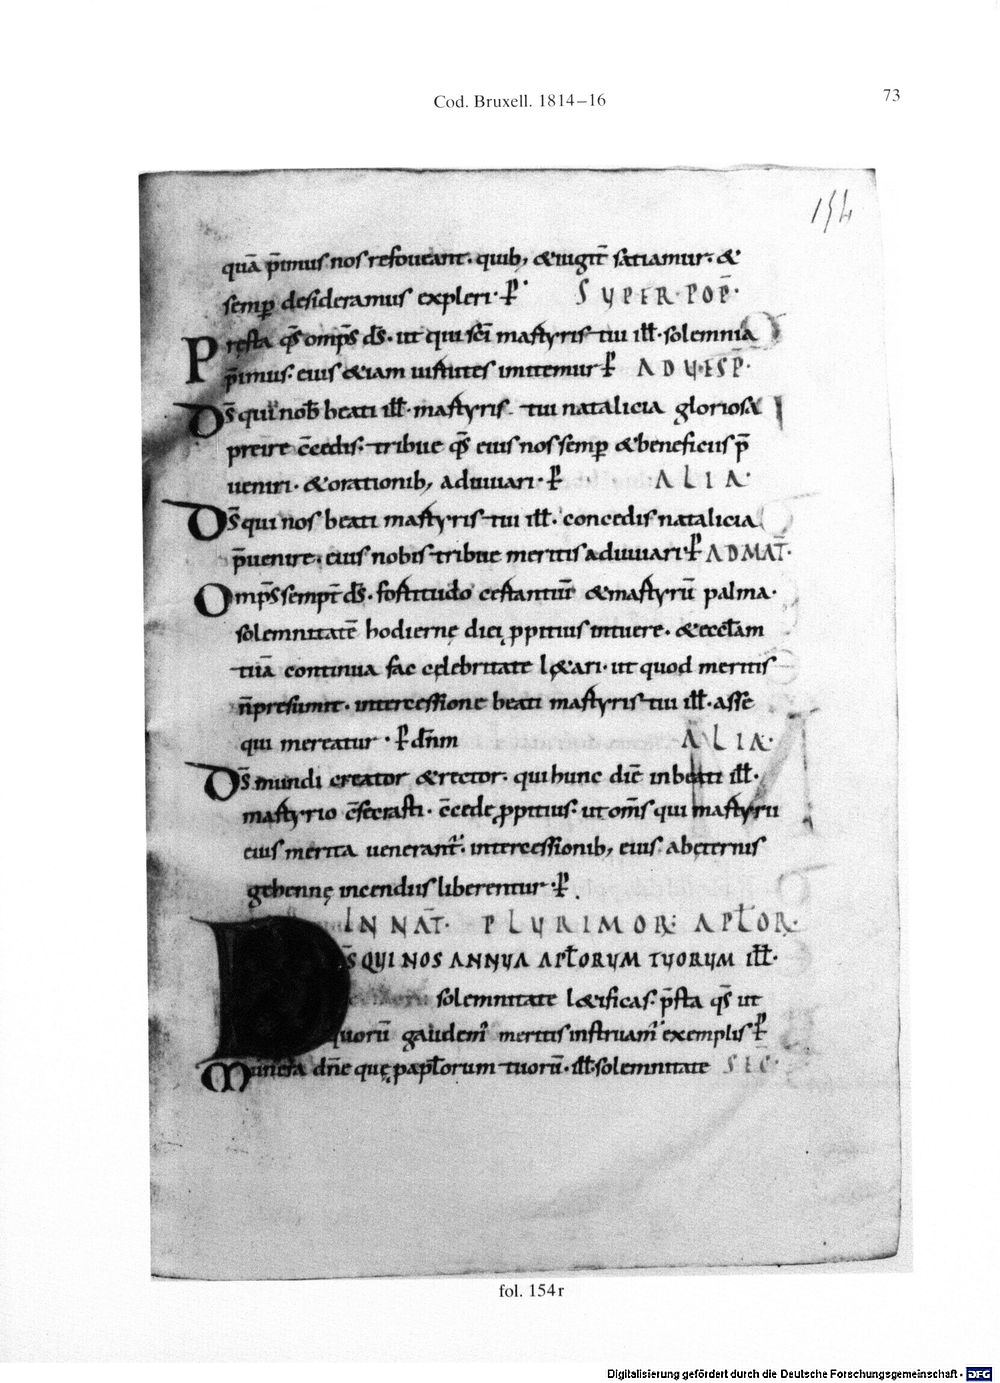 Cod. Bruxell. 1814–16
73
154
quā p̄imus nos refoueant. quib; & iugit̄ satiamur. &
semp̱ desideramus expleri. P̱ SUPER POP̄.
Presta q̄s omp̄s d̄s. ut qui sc̄i martyris tui ill̄. solemnia
p̄imus. eius &iam uirtutes imitemur P̱ AD UESP̄.
D̄s qui nob̄ beati ill̄. martyris. tui natalicia gloriosa
preire c̄cedis. tribue q̄s eius nos semp̱ & beneficiis p̄
ueniri. & orationib; adiuuari. P̱ ALIA.
D̄s qui nos beati martyris tui ill̄. concedis natalicia
p̄uenire. eius nobis tribue meritis adiuuari P̱ AD MAT̄.
Omp̄s sempt̄ d̄s. fortitudo certantiū & martyrū palma.
solemnitatē hodiernę diei p̱pitius intuere. & eccl̄am
tuā continua fac cęlebritate l&ari. ut quod meritis
n̄ presumit. intercessione beati martyris tui ill̄. asse
qui mereatur. P̱ dn̄m ALIA.
D̄s mundi creator & rector. qui hunc diē in beati ill̄.
martyrio c̄secrasti. c̄cede p̱pitius. ut om̄s qui martyrii
eius merita uenerant̄. intercessionib; eius. ab ęternis
gehennę incendiis liberentur. P̱.
IN NAT̄. PLURIMOR. APL̄OR.
D̄S QUI NOS ANNUA APL̄ORUM TUORUM ill̄.
solemnitate l&ificas. p̄sta q̄s ut
quorū gaudem̄ meritis instruam̄ exemplis P̱
Munera dn̄e quę p apl̄orum tuorū. ill̄. solemnitate SEC̄
fol. 154r
Digitalisierung gefördert durch die Deutsche Forschungsgemeinschaft - DFG